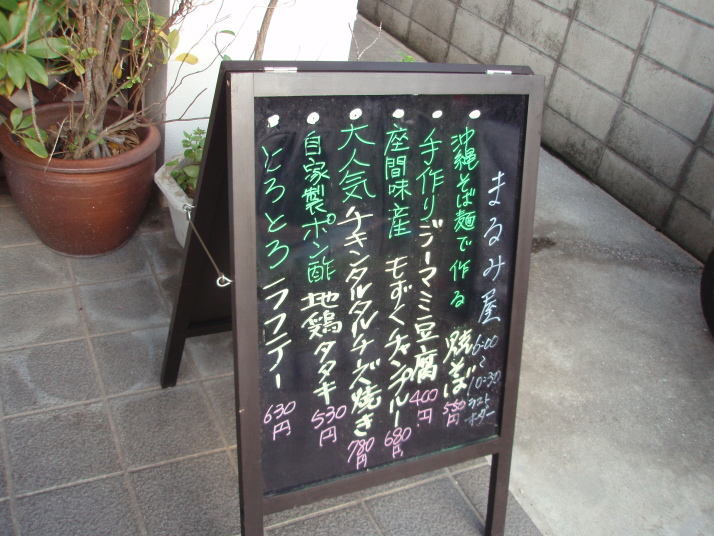 まるみ屋
6:00
〜
10:30
ラスト
オーダー
沖縄そば麺で作る 焼そば 580円
手作りジーマミ豆腐 400円
座間味産 もずくチャンプルー 680円
大人気 チキンタルタルチーズ焼き 780円
自家製ポン酢 地鶏タタキ 530円
とろとろラフテー 630円